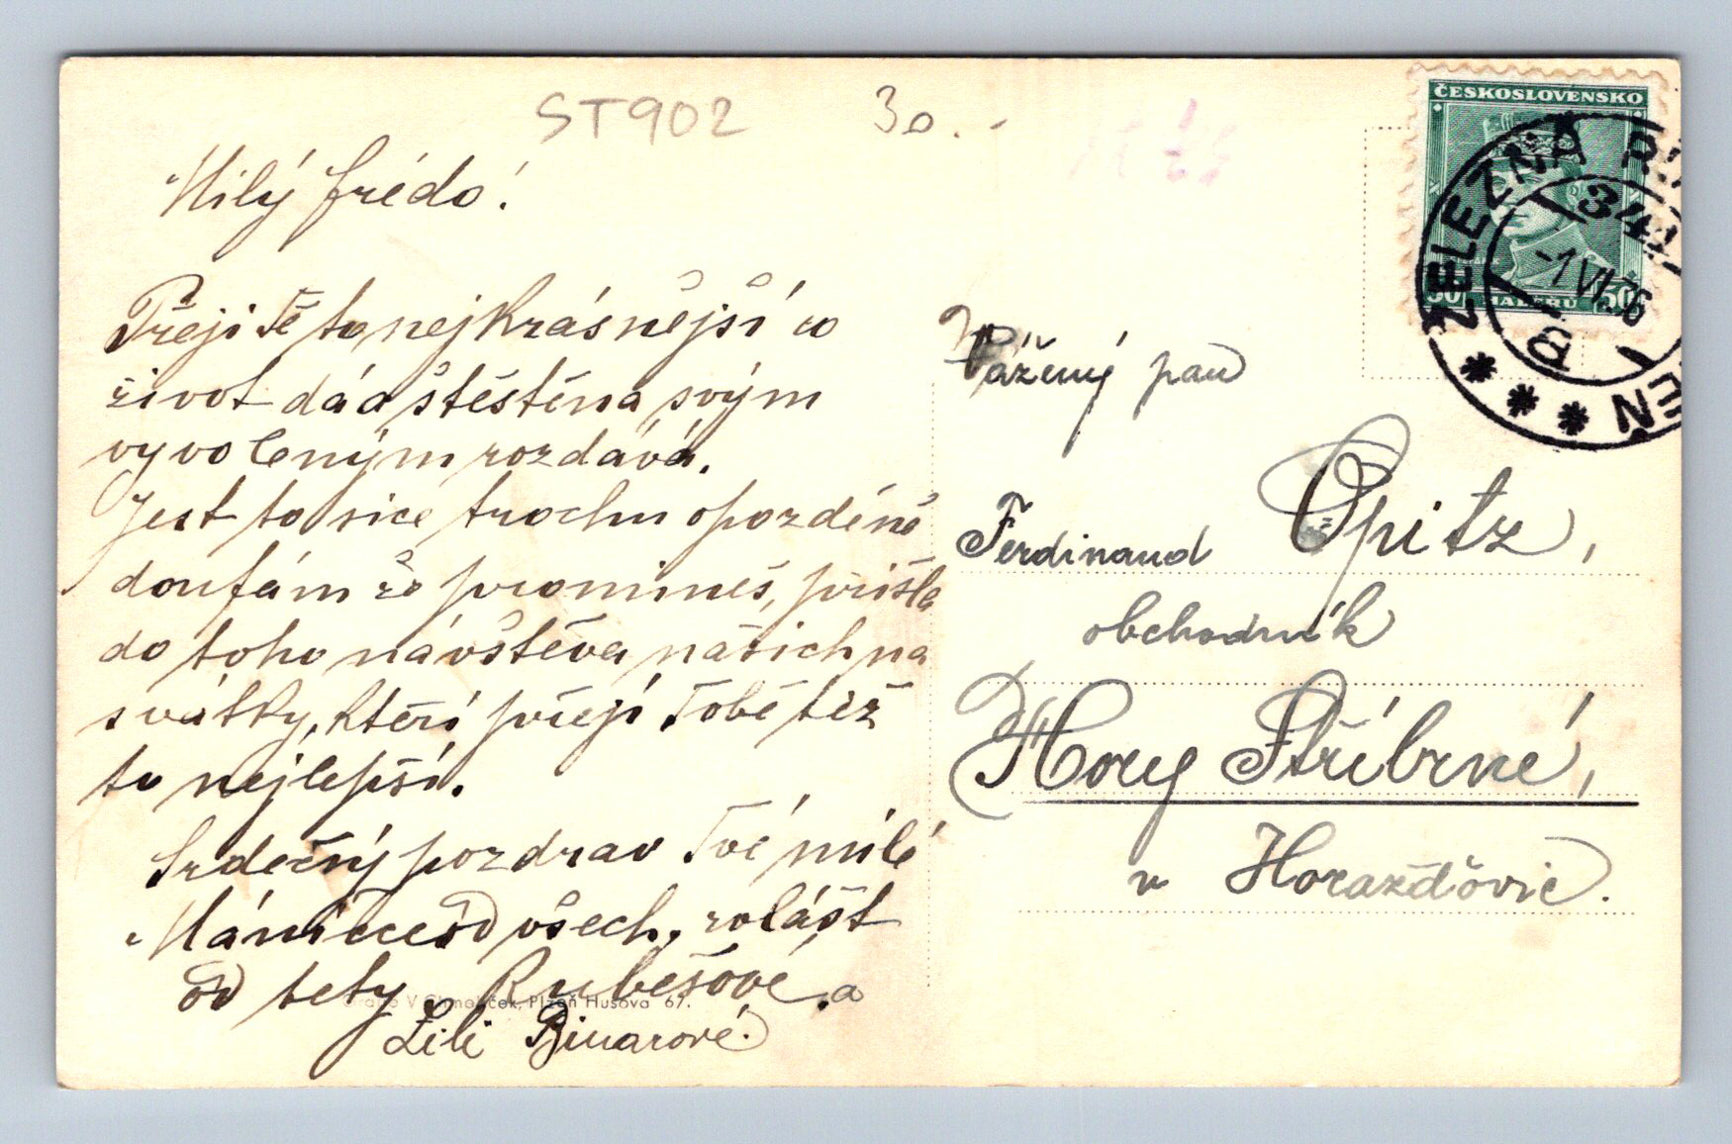 ST902 30.-
Milý Frédo!
Přeji Tě to nejkrásnější co
život dá a štěstěna svým
vyvoleným rozdává.
Jest to sice trochu opozděně
doufám že promineš, přišla
do toho návštěva našich na
svátky, kteří přejí Tobě též
to nejlepší.
Srdečný pozdrav Tvé milé
Mánince od všech, zvlášt
od tety Rubešové a
Lili
V Chmelíček, Plzeň Husova 67.
ČESKOSLOVENSKO
50 HALÉŘŮ 50
ŽELEZNÁ RUDA
-1 VI 36
Vážený pan
Ferdinand Opitz,
obchodník
Hory Stříbrné,
v Horažďovic.